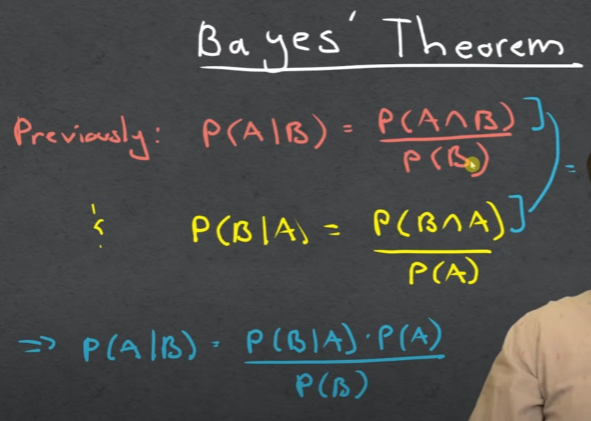 Bayes' Theorem
Previously: P(A|B) = P(A∩B) / P(B) ] =
& P(B|A) = P(B∩A) / P(A) ]
=> P(A|B) = P(B|A)·P(A) / P(B)